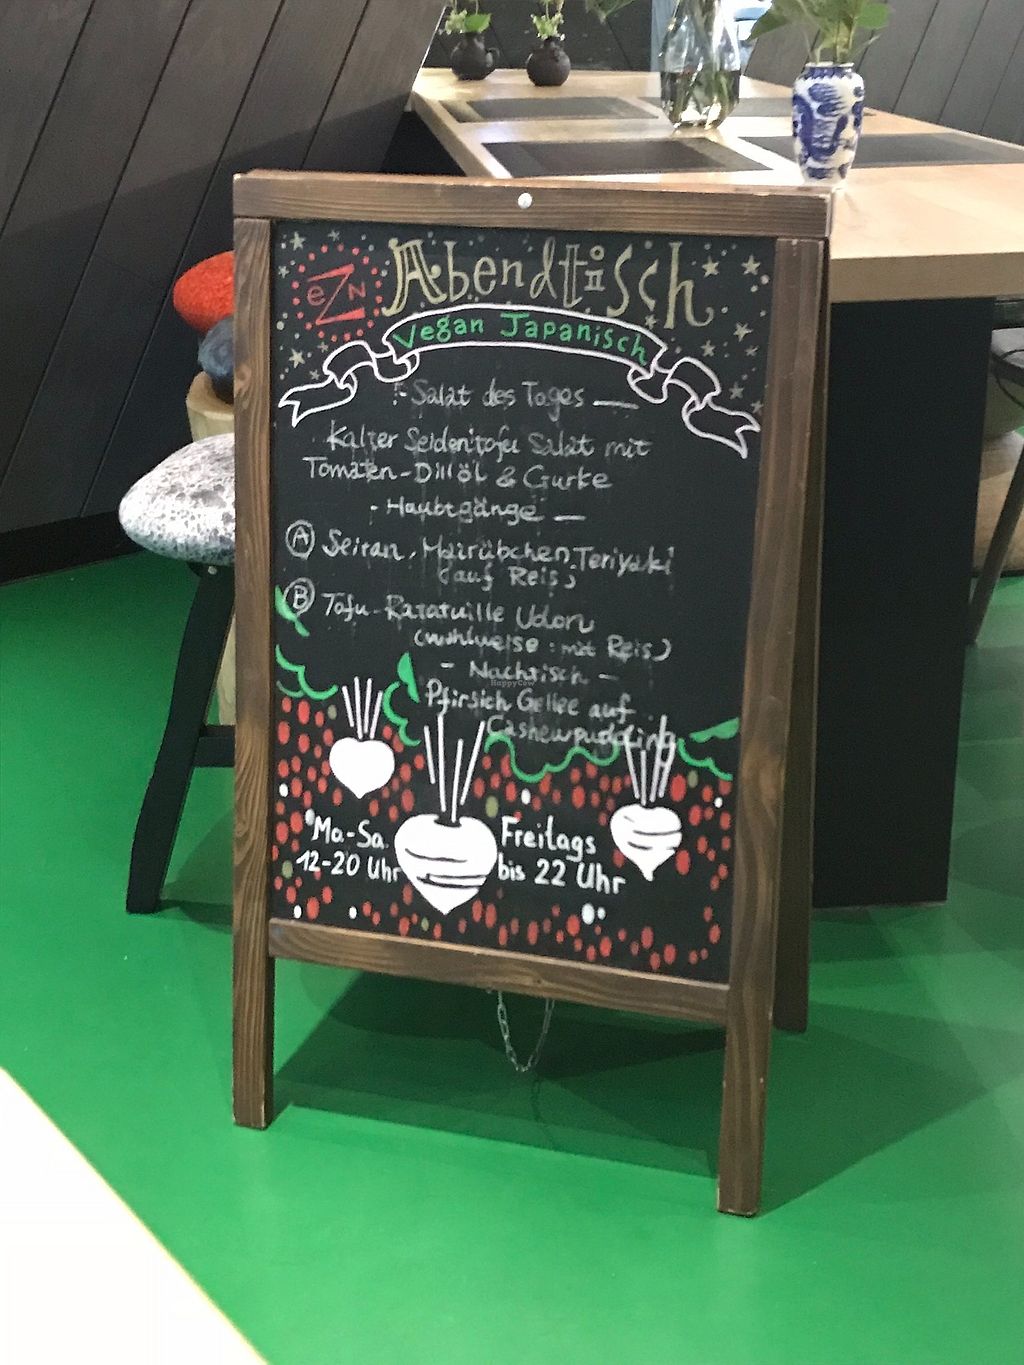 eZN
Abendtisch
Vegan Japanisch
- Salat des Tages —
Kalter Seidentofu Salat mit
Tomaten-Dillöl & Gurke
- Hauptgänge —
A Seitan, Mairübchen, Teriyaki
(auf Reis)
B Tofu-Ratatuille Udon
(wahlweise : mit Reis)
- Nachtisch -
HappyCow
Pfirsich Gellee auf
Cashewpudding
Mo-Sa. Freitags
12-20 Uhr bis 22 Uhr